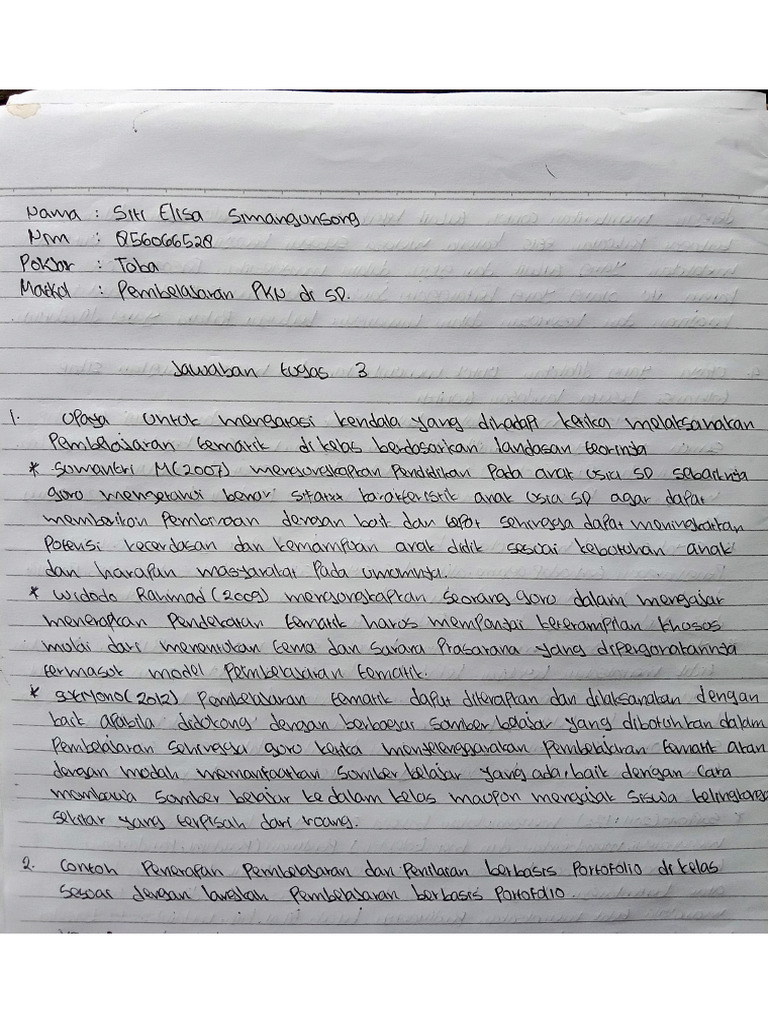 Nama : Siti Elisa Simangunsong
Nim : 856066528
Pokjar : Toba
Matkul : Pembelajaran PKN di SD.
Jawaban tugas 3
1. Upaya untuk mengatasi kendala yang dihadapi ketika melaksanakan
Pembelajaran tematik di kelas berdasarkan landasan teorinya
* Sumantri M(2007) mengungkapkan Pendidikan Pada anak usia SD sebaiknya
guru mengetahui benar sifat karakteristik anak usia SD agar dapat
memberikan Pembinaan dengan baik dan tepat sehingga dapat meningkatkan
Potensi kecerdasan dan kemampuan anak didik sesuai kebutuhan anak
dan harapan masyarakat Pada umumnya.
* Widodo Rahmad(2009) mengungkapkan seorang guru dalam mengajar
menerapkan Pendekatan tematik harus mempunyai keterampilan khusus
mulai dari menentukan tema dan sarana Prasarana yang dipergunakannya
termasuk model Pembelajaran tematik.
* (2012) Pembelajaran tematik dapat diterapkan dan dilaksanakan dengan
baik apabila didukung dengan berbagai sumber belajar yang dibutuhkan dalam
Pembelajaran sehingga guru ketika menyelenggarakan Pembelajaran tematik akan
dengan mudah memanfaatkan sumber belajar yang ada, baik dengan cara
membawa sumber belajar ke dalam kelas maupun mengajak siswa kelingkungan
sekitar yang terpisah dari ruang.
2. Contoh Penerapan Pembelajaran dan Penilaian berbasis Portofolio di kelas
Sesuai dengan langkah Pembelajaran berbasis Portofolio.